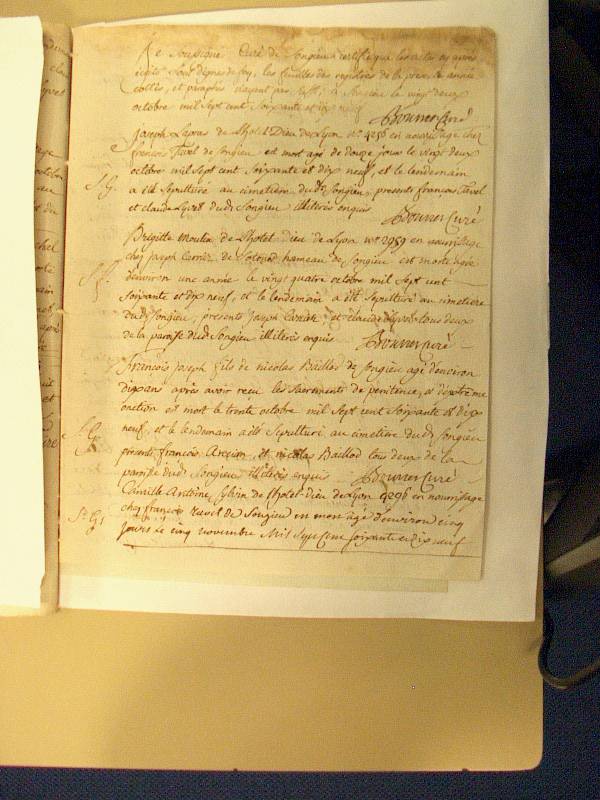 Je soussigné Curé de Songieu certifie que les actes cy après
écrits sont dignes de foy, les feuilles des registres de la présente année
cottés, et paraphés n'ayant pas suffi; à Songieu le vingt deux
octobre mil sept cent soixante et dix neuf
Bonnet Curé
Joseph Lapras de l'hotel Dieu de Lyon n° 4256 en nourrissage chez
françois Tavel de Songieu est mort agé de douze jours le vingt deux
octobre mil sept cent soixante et dix neuf, et le lendemain
S. G. a été sepulturé au cimetière dudt Songieu, présents francois Tavel
et claude dudt Songieu illiterés enquis
Bonnet Curé
Brigitte Moulin de l'hotel Dieu de Lyon n° 2959 en nourrissage
chez Joseph de hameau de Songieu est morte agée
d'environ une année le vingt quatre octobre mil sept cent
soixante et dix neuf, et le lendemain a été sepulturé au cimetiere
dudt Songieu, présents Joseph et claude tous deux
de la paroisse dudt Songieu illiterés enquis
Bonnet Curé
francois Joseph fils de nicolas Baillod de Songieu agé d'environ
dix ans après avoir recu les sacrements de penitence, et d'extreme
onction est mort le trente octobre mil sept cent soixante et dix
S. G. neuf, et le lendemain a été sepulturé au cimetière dudt Songieu
présents francois et nicolas Baillod tous deux de la
paroisse dudt Songieu illiterés enquis
Bonnet Curé
Camille Antoine de l'hotel-Dieu de Lyon 4296 en nourrissage
S. G. chez françois ravel de Songieu en mort agé d'environ cinq
jours le cinq novembre Mil sept cent soixante et dix neuf